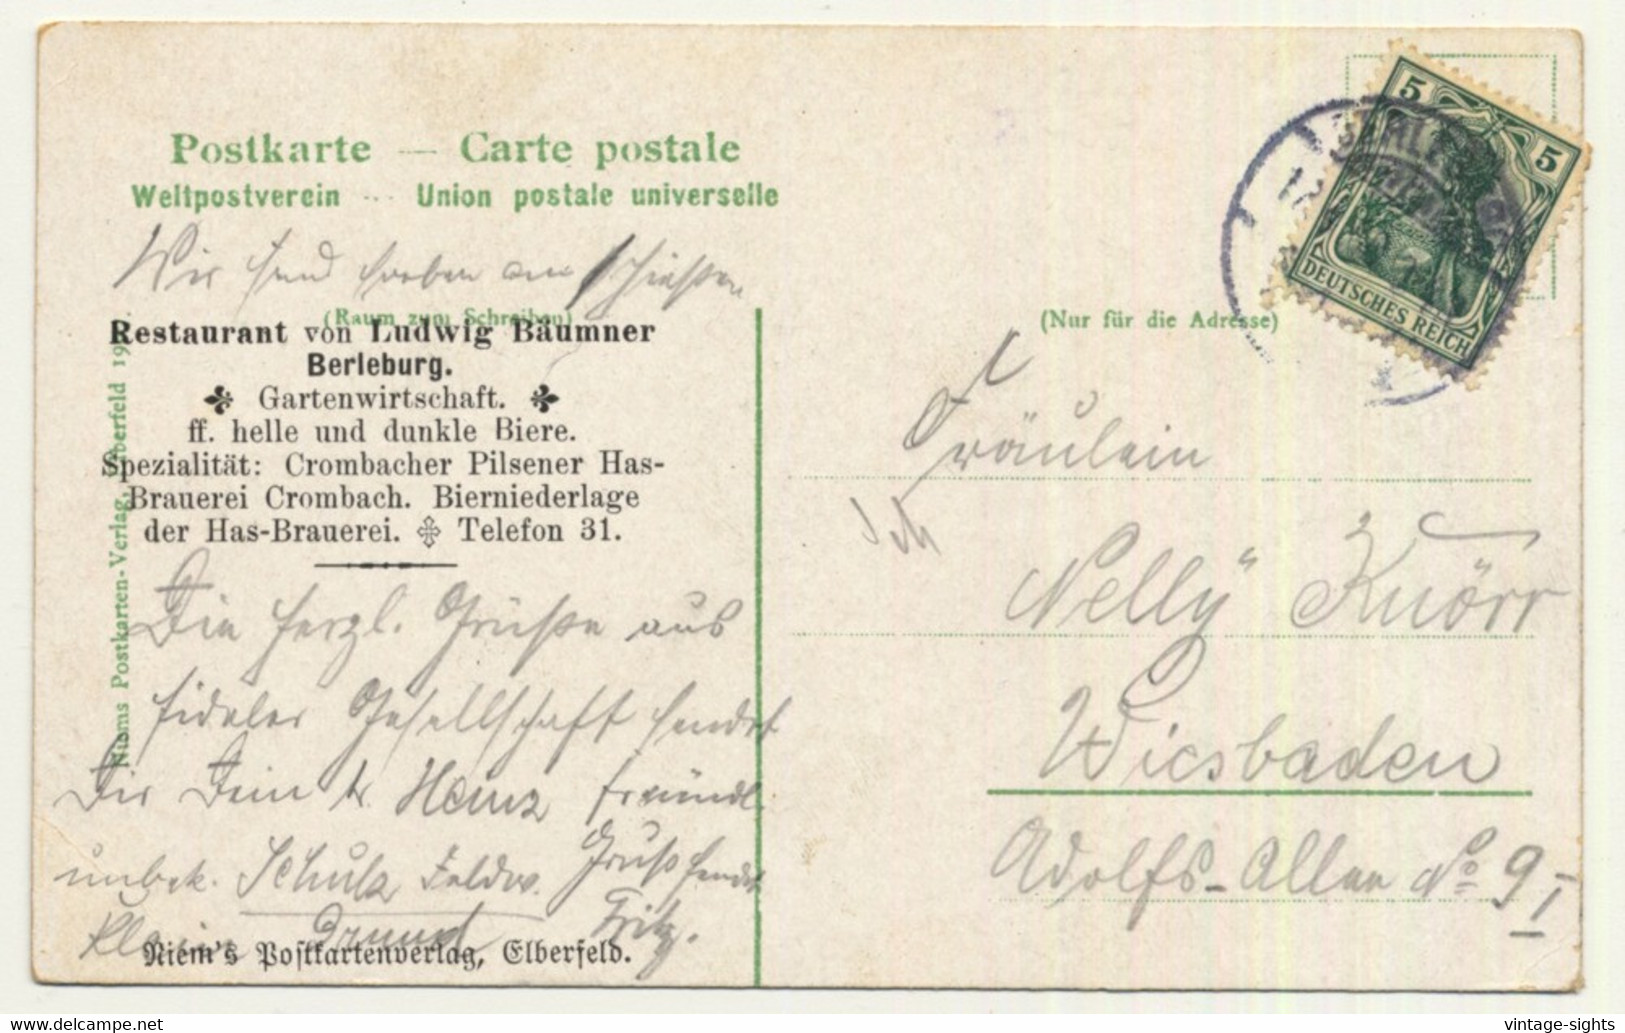 Postkarte — Carte postale
Weltpostverein -- Union postale universelle
Wir sind soeben am schießen
(Raum zum Schreiben)
Restaurant von Ludwig Bäumner
Berleburg.
Gartenwirtschaft.
ff. helle und dunkle Biere.
Spezialität: Crombacher Pilsener Has-
Brauerei Crombach. Bierniederlage
der Has-Brauerei. Telefon 31.
Niems Postkarten-Verlag, Elberfeld 19
Die herzl. Grüße aus
fideler Gesellschaft sendet
Dir Dein Heinz freundl.
unbek. Schulz Gruß sendet
Klein Fritz.
Niem's Postkartenverlag, Elberfeld.
5 5
DEUTSCHES REICH
(Nur für die Adresse)
Fräulein
Nelly Knörr
Wiesbaden
Adolfs-Allee No 9 I
www.delcampe.net
vintage-sights